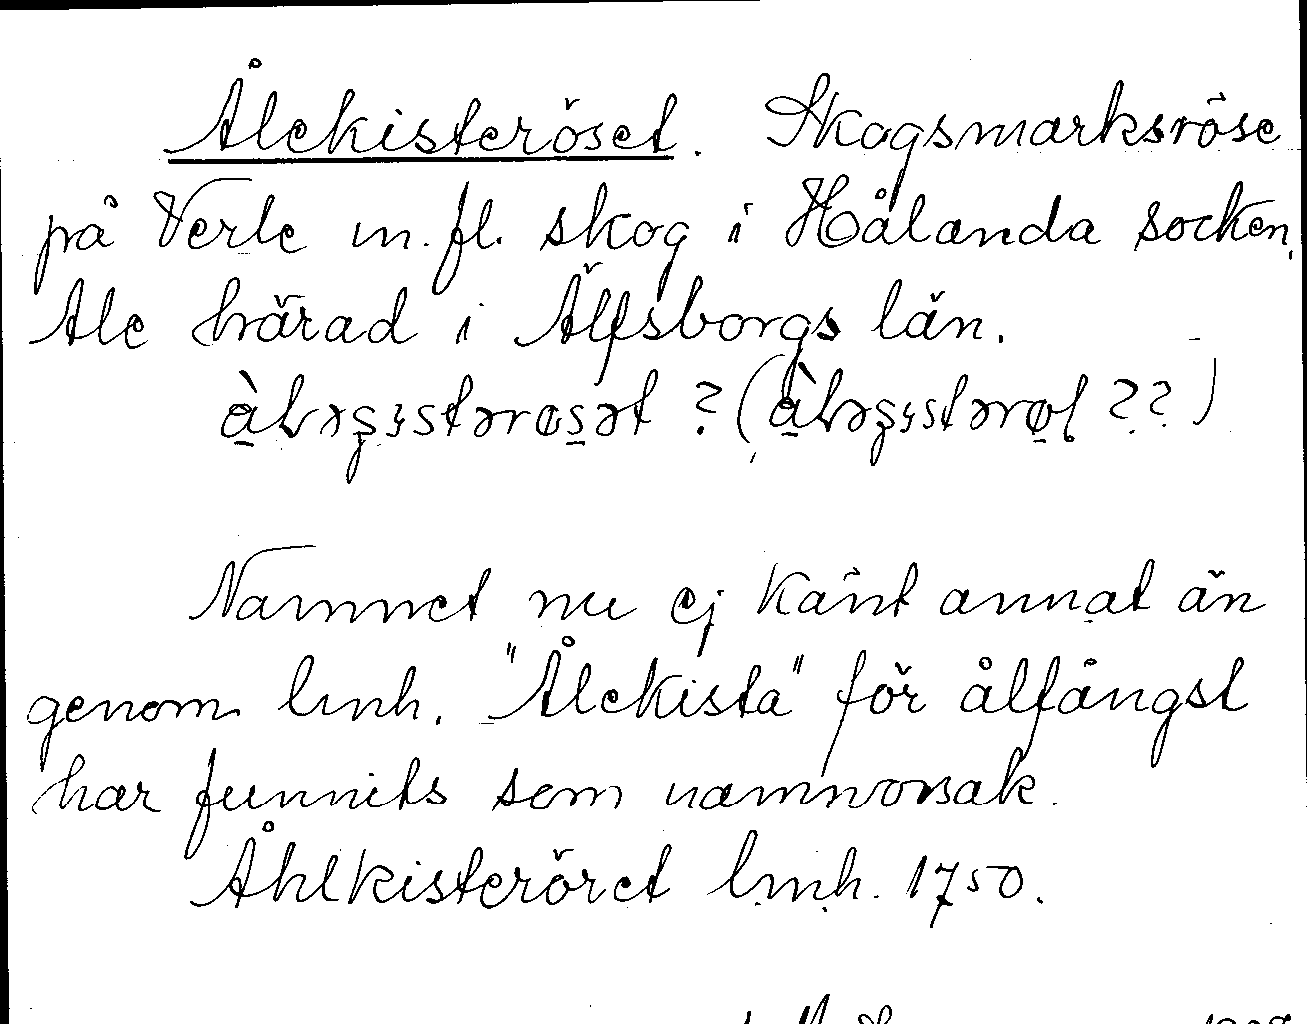 Ålekisteröset. Skogsmarksröse
på Verle m. fl. skog i Hålanda socken,
Ale härad i Älfsborgs län.
Namnet nu ej känt annat än
genom lmh. "Ålekista" för ålfångst
har funnits som namnorsak.
Åhlkisteröret lmh. 1750.